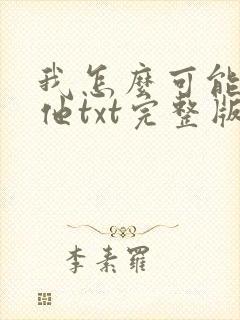 我怎麼可能
他txt完整版
李素羅